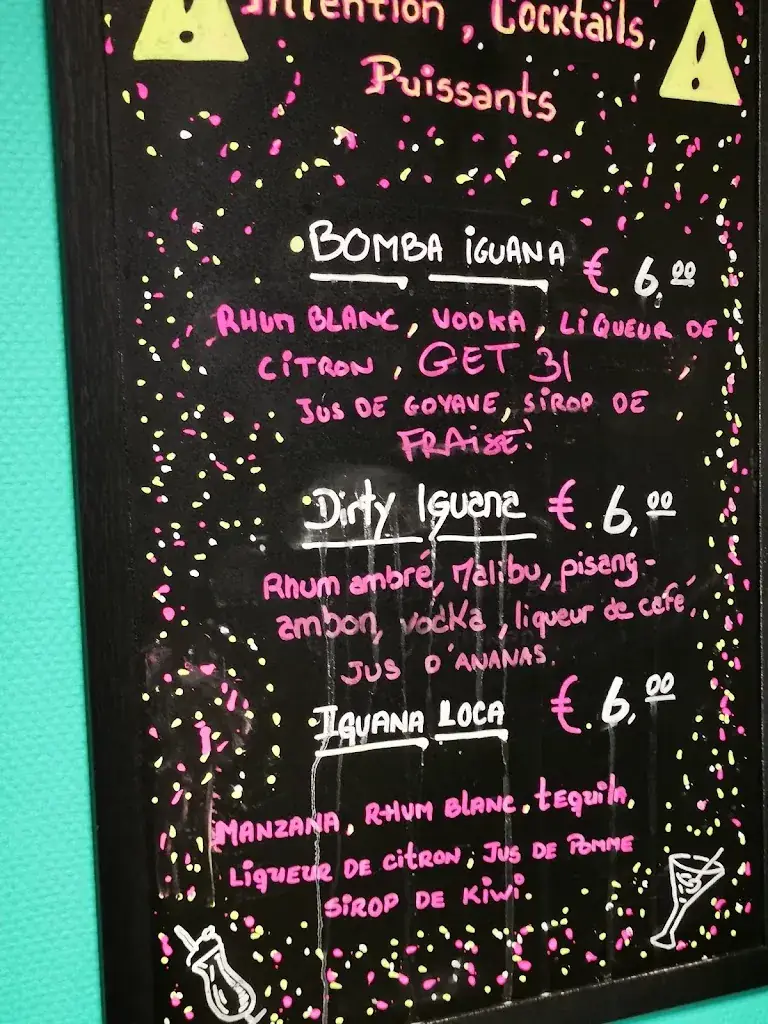 Attention, Cocktails,
Puissants
BOMBA IGUANA €. 6,00
RHUM BLANC, VODKA, LIQUEUR DE
CITRON, GET 31,
JUS DE GOYAVE, SIROP DE,
FRAISE!
Dirty Iguana €. 6,00
Rhum ambré, Malibu, pisang-
ambon, vodka, liqueur de café,
JUS D'ANANAS.
IGUANA LOCA €. 6,00
MANZANA, RHUM BLANC, tequila,
LIQUEUR DE CITRON, JUS DE POMME
SIROP DE KIWI.